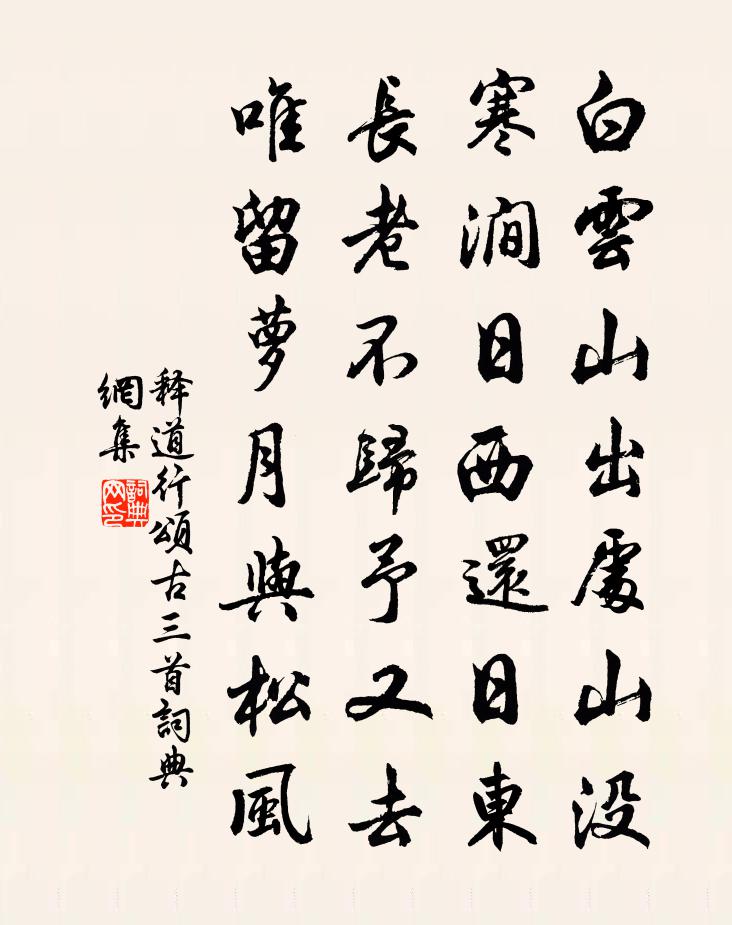 白雲山出處山没
寒澗日西還日東
長老不歸予又去
唯留夢月與松風
释道行頌古三首詞典
網集
詞典
网印